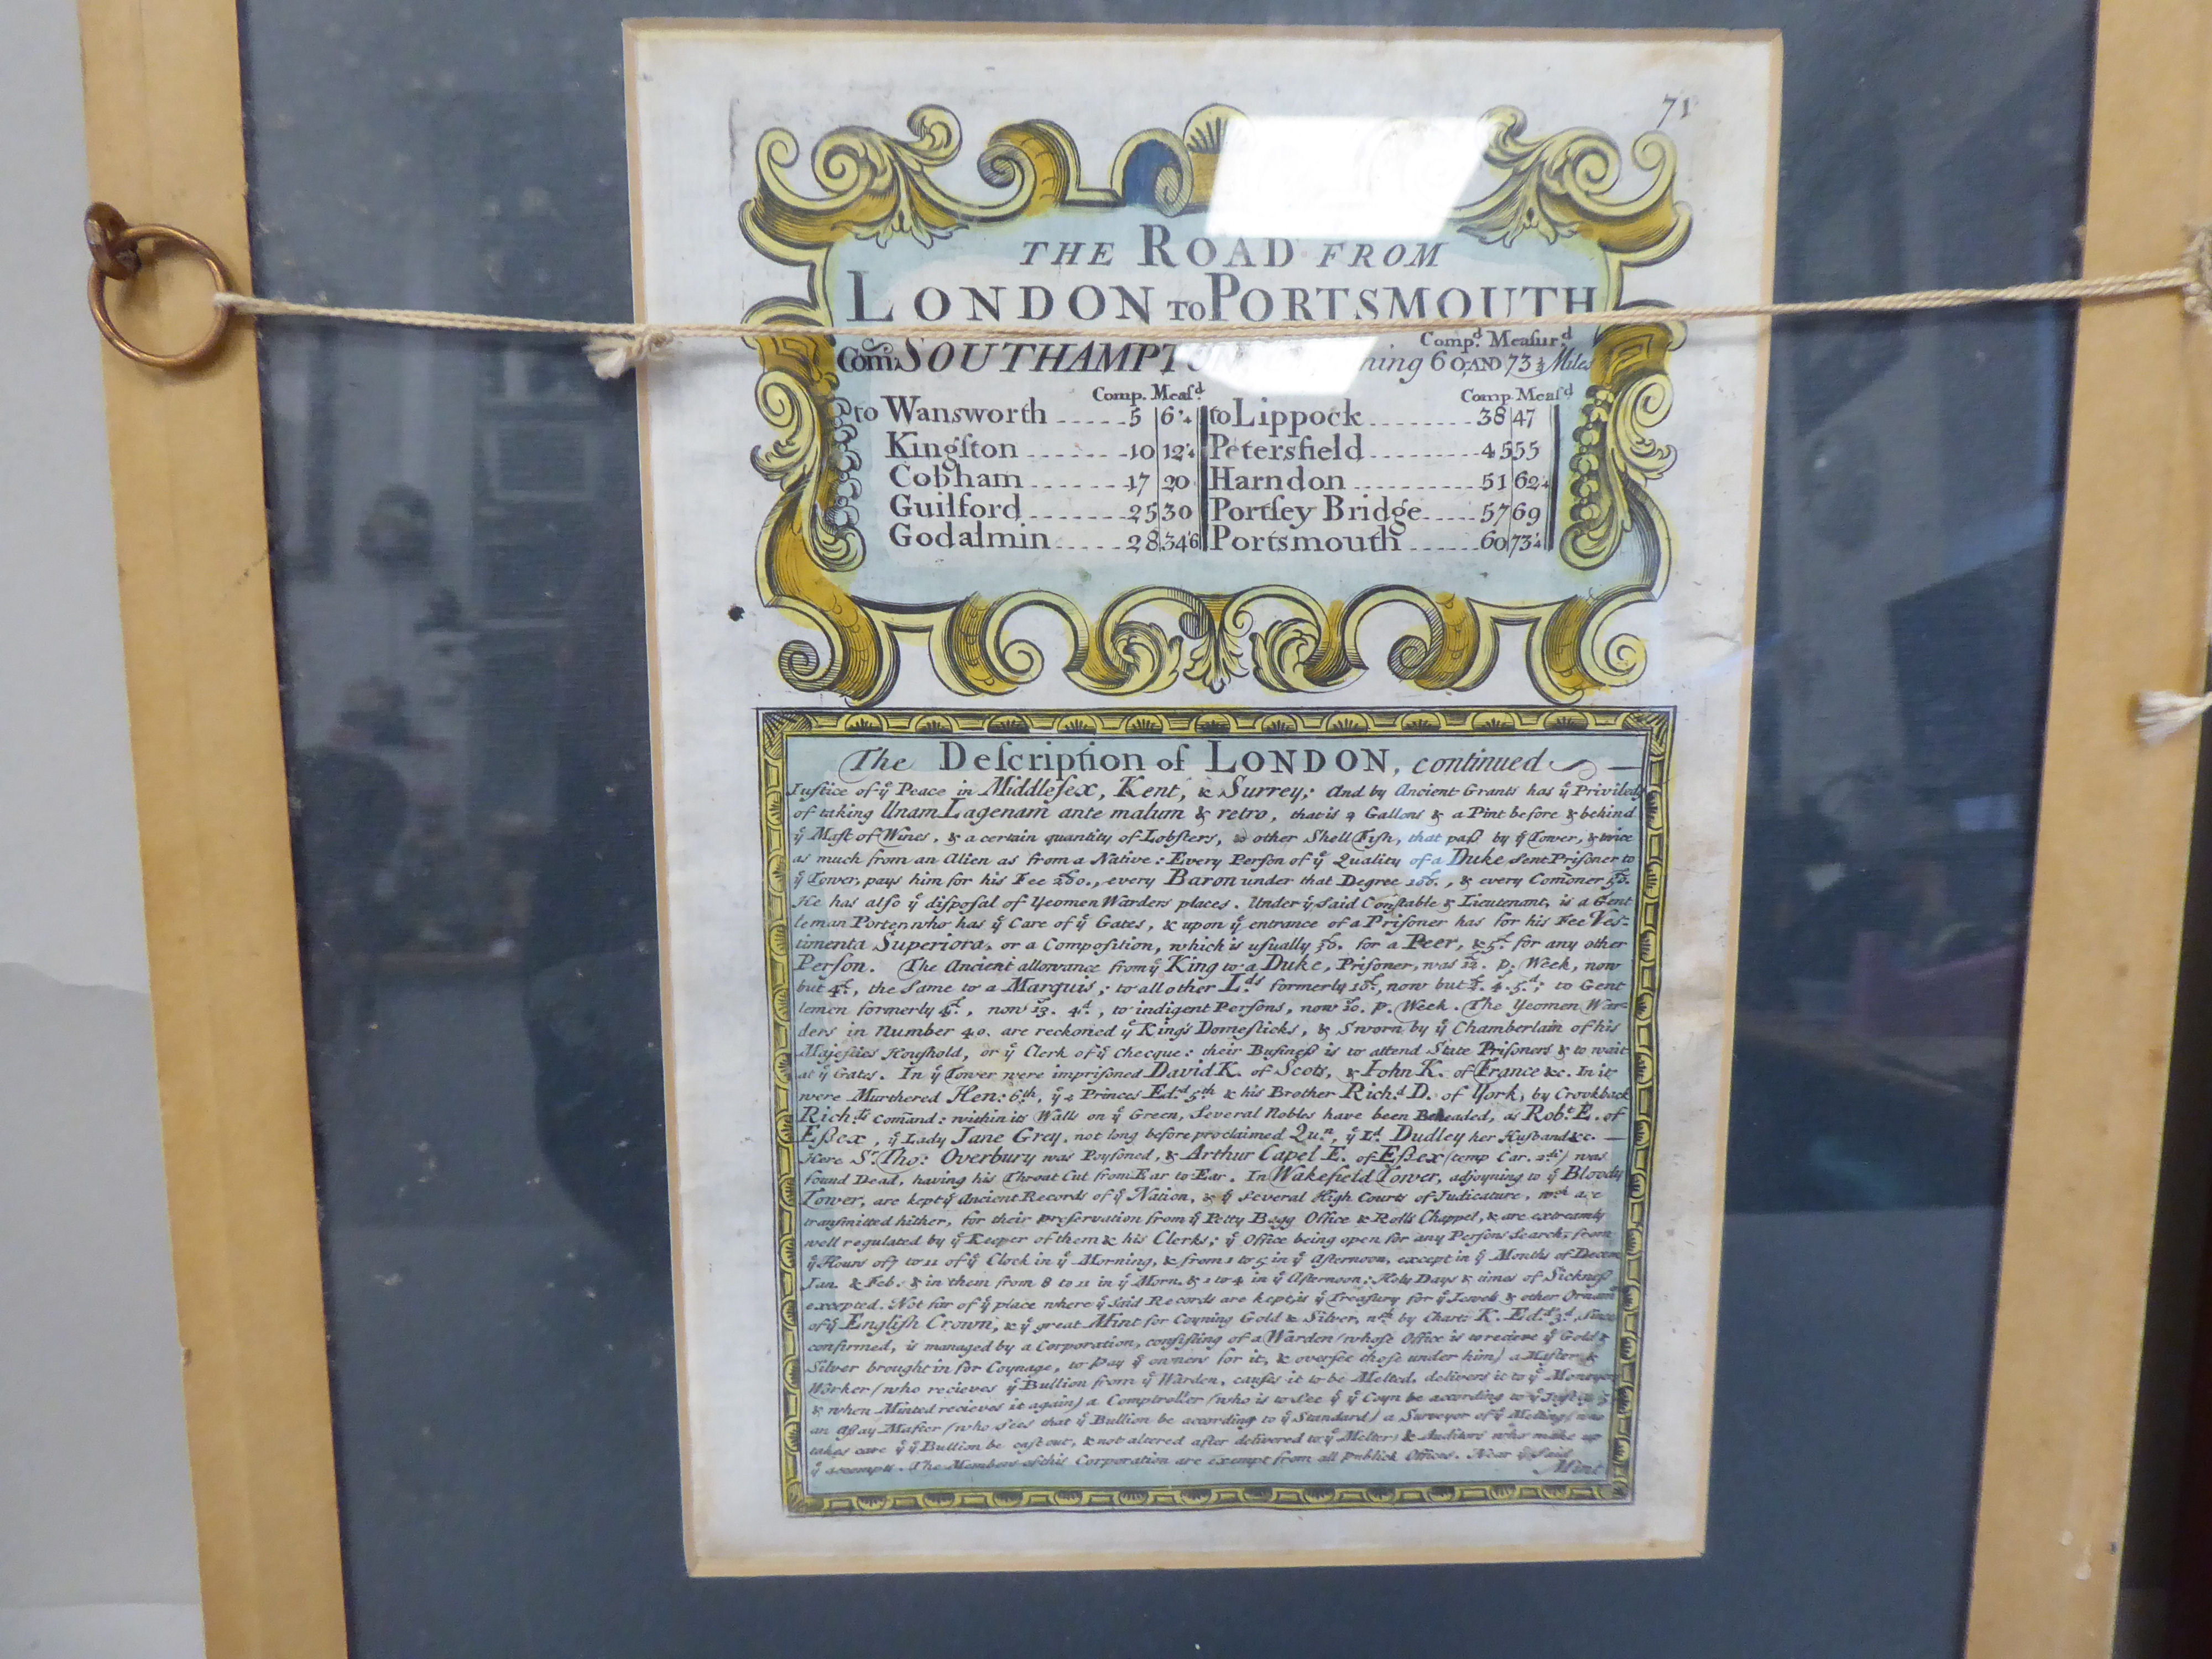 71
THE ROAD FROM
LONDON TO PORTSMOUTH
Comp.d Measur.d
Com. SOUTHAMPTON ning 60 AND 73¼ Miles
Comp. Meas.d Comp. Measd
to Wansworth 5 6'4 to Lippock 38 47
Kingſton 10 12'4 Petersfield 45 55
Cobham 17 20 Harndon 51 62'4
Guilford 25 30 Portſey Bridge 57 69
Godalmin 28 34'6 Portsmouth 60 73'4
The Deſcription of LONDON, continued
Juſtice of ẙ Peace in Middleſex, Kent, & Surrey; And by Ancient Grants has ẙ Priviledg
of taking Unam Lagenam ante malum & retro, that is 2 Gallons & a Pint before & behind
ẙ Maſt of Wines, & a certain quantity of Lobſters, & other Shell Fiſh, that paſs by ẙ Tower, & twice
as much from an Alien as from a Native: Every Perſon of ẙ Quality of a Duke ſent Priſoner to
ẙ Tower, pays him for his Fee every Baron under that Degree & every Com̄oner
He has alſo ẙ diſpoſal of Yeomen Warders places. Under ẙ ſaid Conſtable & Lieutenant, is a Gent
leman Porter who has ẙ Care of ẙ Gates, & upon ẙ entrance of a Priſoner has for his Fee Ves-
timenta Superiora, or a Compoſition, which is uſually for a Peer, & for any other
Perſon. The Ancient allowance from ẙ King to a Duke, Priſoner, was p. Week, now
but the ſame to a Marquis; to all other L.ds formerly now but to Gent
lemen formerly now to indigent Perſons, now p. Week. The Yeomen War-
ders in Number 40. are reckoned ẙ Kings Domeſticks, & Sworn by ẙ Chamberlain of his
Majeſties Houſhold, or ẙ Clerk of ẙ Checque: their Buſineſs is to attend State Priſoners & to wait
at ẙ Gates. In ẙ Tower were impriſoned David K. of Scots, & Iohn K. of France &c. In it
were Murthered Hen: 6.th, ẙ 2 Princes Ed.d 5th & his Brother Rich.d D. of York, by Crookback
Rich.ds Com̄and: within its Walls on ẙ Green, Several Nobles have been Beheaded, as Rob.t E. of
Eſsex, ẙ Lady Jane Grey, not long before proclaimed Qu.n, ẙ L.d Dudley her Huſband &c.
Here S.r Tho: Overbury was Poyſoned, & Arthur Capel E. of Eſsex (temp Car. 2di) was
found Dead, having his Throat Cut from Ear to Ear. In Wakefield Tower, adjoyning to ẙ Bloody
Tower, are kept ẙ Ancient Records of ẙ Nation, & ẙ ſeveral High Courts of Judicature, wch are
tranſmitted hither, for their preſervation from ẙ Petty Bagg Office & Rolls Chappel, & are extreamly
well regulated by ẙ Keeper of them & his Clerks; ẙ Office being open for any Perſons Search, from
ẙ Hours of 7 to 11 of ẙ Clock in ẙ Morning, & from 1 to 5 in ẙ Afternoon, except in ẙ Months of Decem
Jan. & Feb. & in them from 8 to 11 in ẙ Morn. & 1 to 4 in ẙ Afternoon: Holy Days & times of Sickneſs
excepted. Not far of ẙ place where ẙ ſaid Records are kept, is ẙ Treaſury for ẙ Jewels & other Ornam
of ẙ Engliſh Crown, & ẙ great Mint for Coyning Gold & Silver, by Chart: K. Ed.d 3.d, ſince
confirmed, is managed by a Corporation, conſiſting of a Warden (whoſe Office is to recieve ẙ Gold &
Silver brought in for Coynage, to pay ẙ owners for it, & overſee thoſe under him) a Maſter &
Worker (who recieves ẙ Bullion from ẙ Warden, cauſes it to be Melted, delivers it to ẙ Moneyers
& when Minted recieves it again) a Comptroller (who is to ſee ẙ ẙ Coyn be according to ẙ
an Aſsay Maſter (who ſees that ẙ Bullion be according to ẙ Standard) a Surveyor of ẙ Melting (who
takes care ẙ ẙ Bullion be caſt out, & not altered after delivered to ẙ Melter) & Auditors who make up
ẙ accompts. The Members of this Corporation are exempt from all Publick Offices. Near ẙ ſaid
Mint